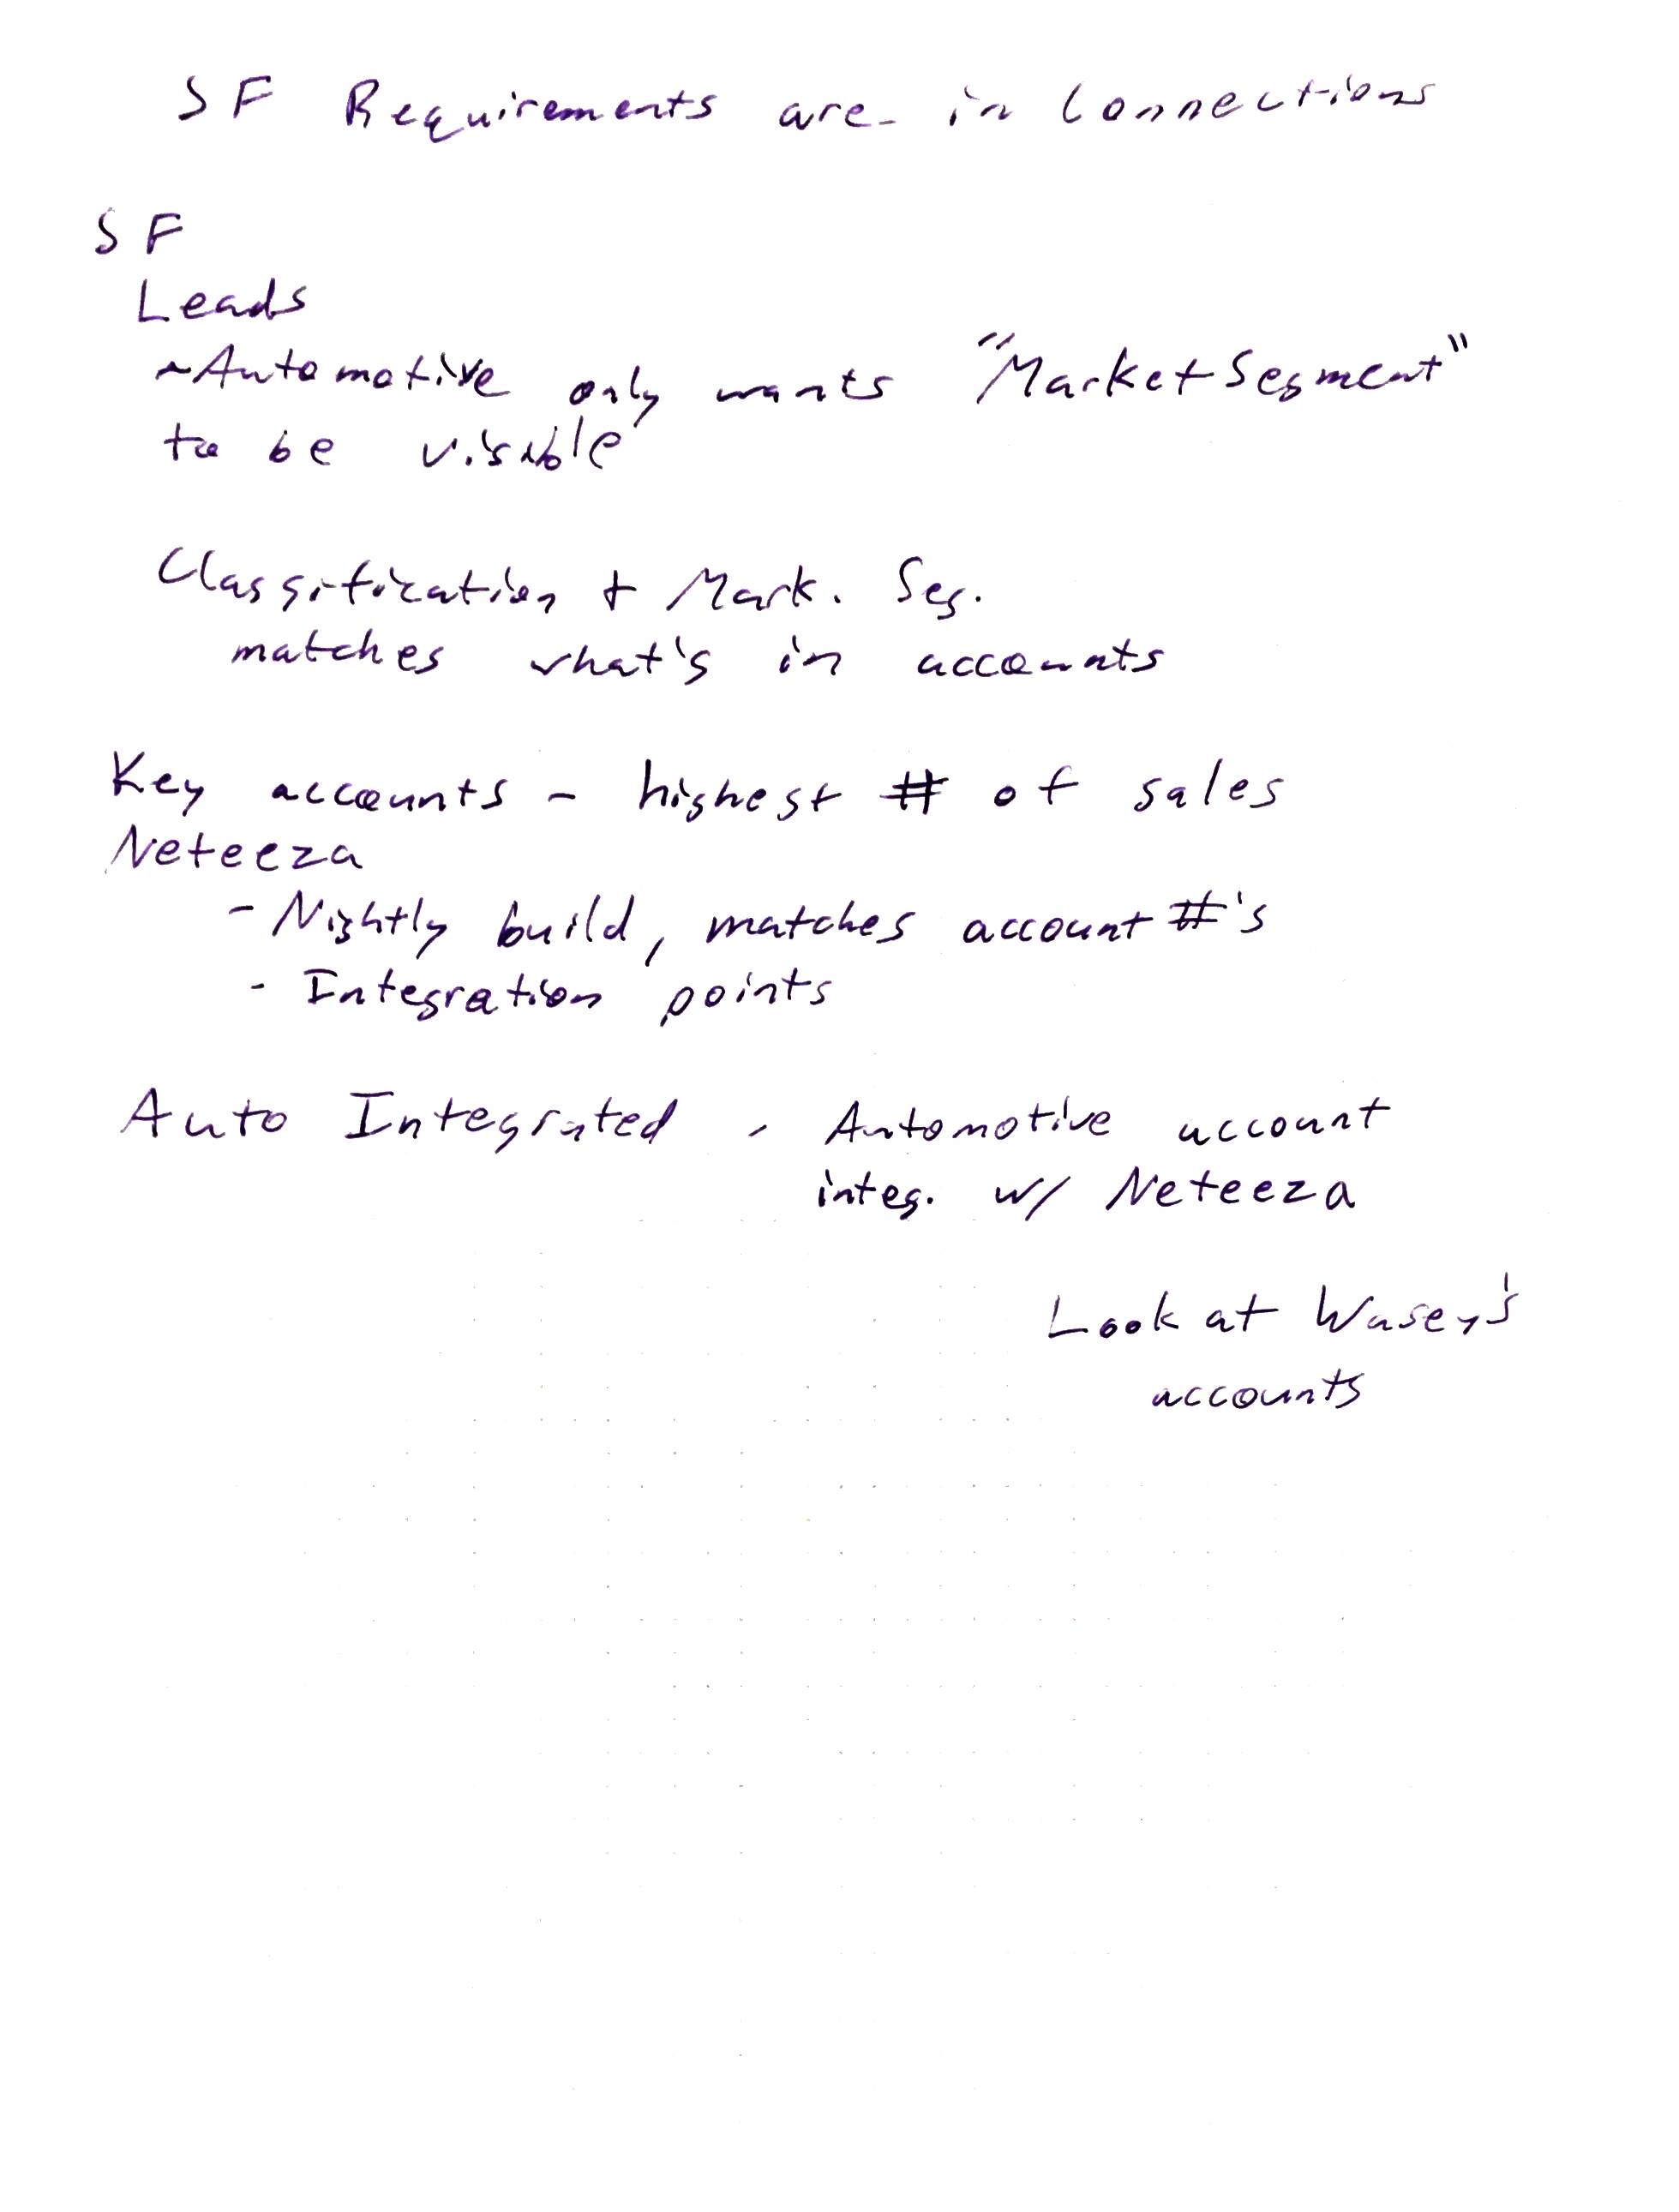 SF Requirements are in Connections
SF
Leads
~Automotive only wants "Market Segment"
to be visible
Classification + Mark. Seg.
matches what's in accounts
Key accounts - highest # of sales
Neteeza
- Nightly build, matches account #'s
- Integration points
Auto Integrated - Automotive account
integ. w/ Neteeza
Look at Wasey's
accounts